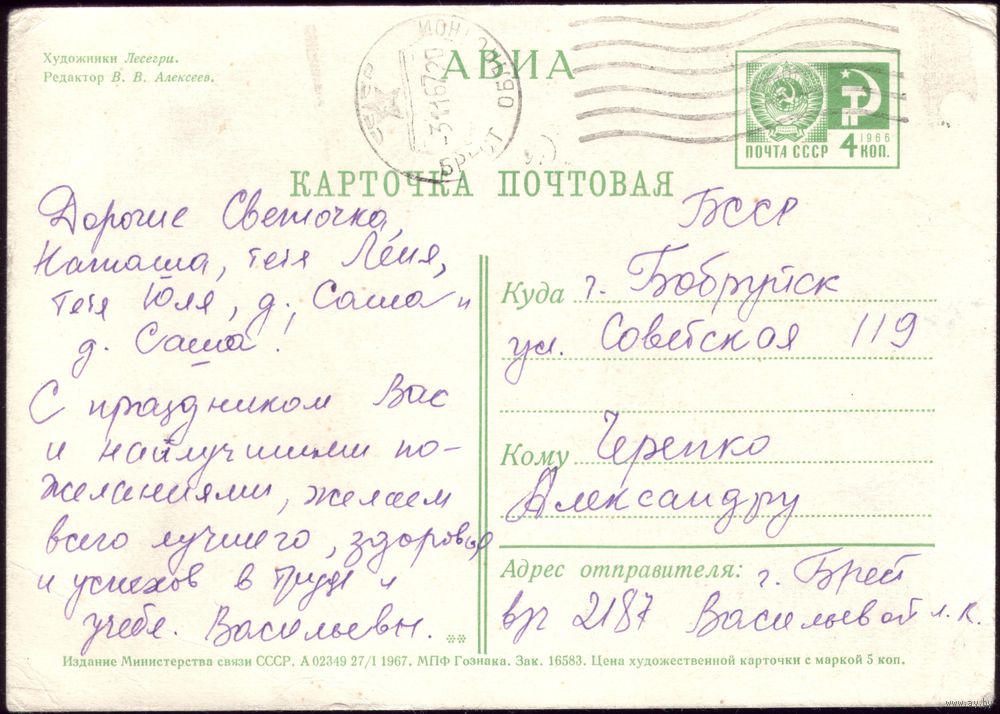 Художники Лесегри.
Редактор В. В. Алексеев.
АВИА
СССР
БРЕСТ ОБЛ
-31167 20
ПОЧТА СССР
1966
4 КОП.
КАРТОЧКА ПОЧТОВАЯ
Дорогие Светочка,
Наташа, тетя Лёня,
тетя Юля, д. Саша и
д. Саша!
С праздником Вас
и наилучшими по-
желаниями, желаем
всего лучшего, здоровья
и успехов в труде и
учебе. Васильевы.
**
БССР
Куда г. Бобруйск
ул. Советская 119
Кому Черепко
Александру
Адрес отправителя: г. Брест
в/г 2187 Васильевой Л. К.
Издание Министерства связи СССР. А 02349 27/I 1967. МПФ Гознака. Зак. 16583. Цена художественной карточки с маркой 5 коп.
www.ay.by